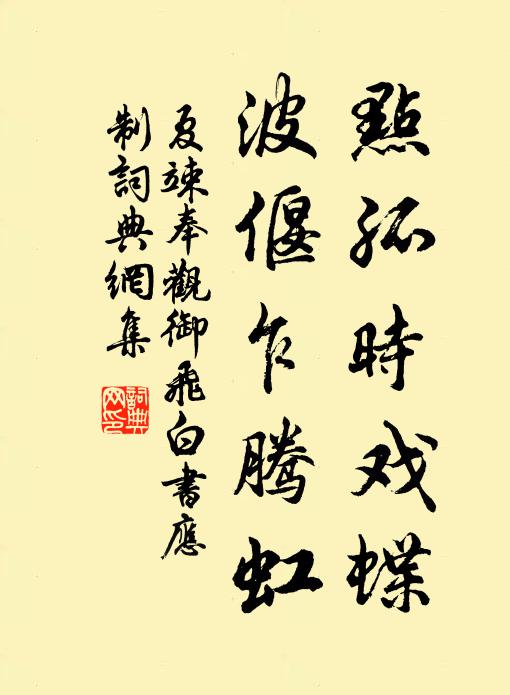 點孤時戏蝶
波偃乍腾虹
夏竦奉觀御飛白書應
制詞典網集
詞典
网印